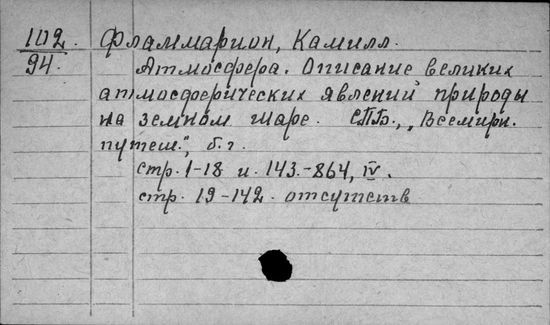 102. Фламмарион, Камилл.
94. Атмосфера. Описание великих
атмосферических явлений природы
на земном шаре. СПБ., „Всемирн.
путеш.", б. г.
стр. 1-18 и 143.-864, IV.
стр. 19-142. отсутств